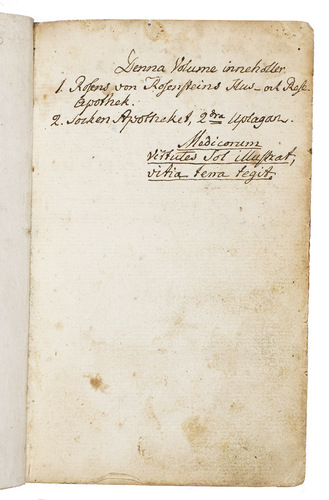 Denna Volume innehåller
1. Rosens von Rosensteins Hus- och Rese-
Apothek.
2. Socken Apotheket, 2dra Uplagan.
Medicorum
virtutes Sol illustrat,
vitia terra tegit.